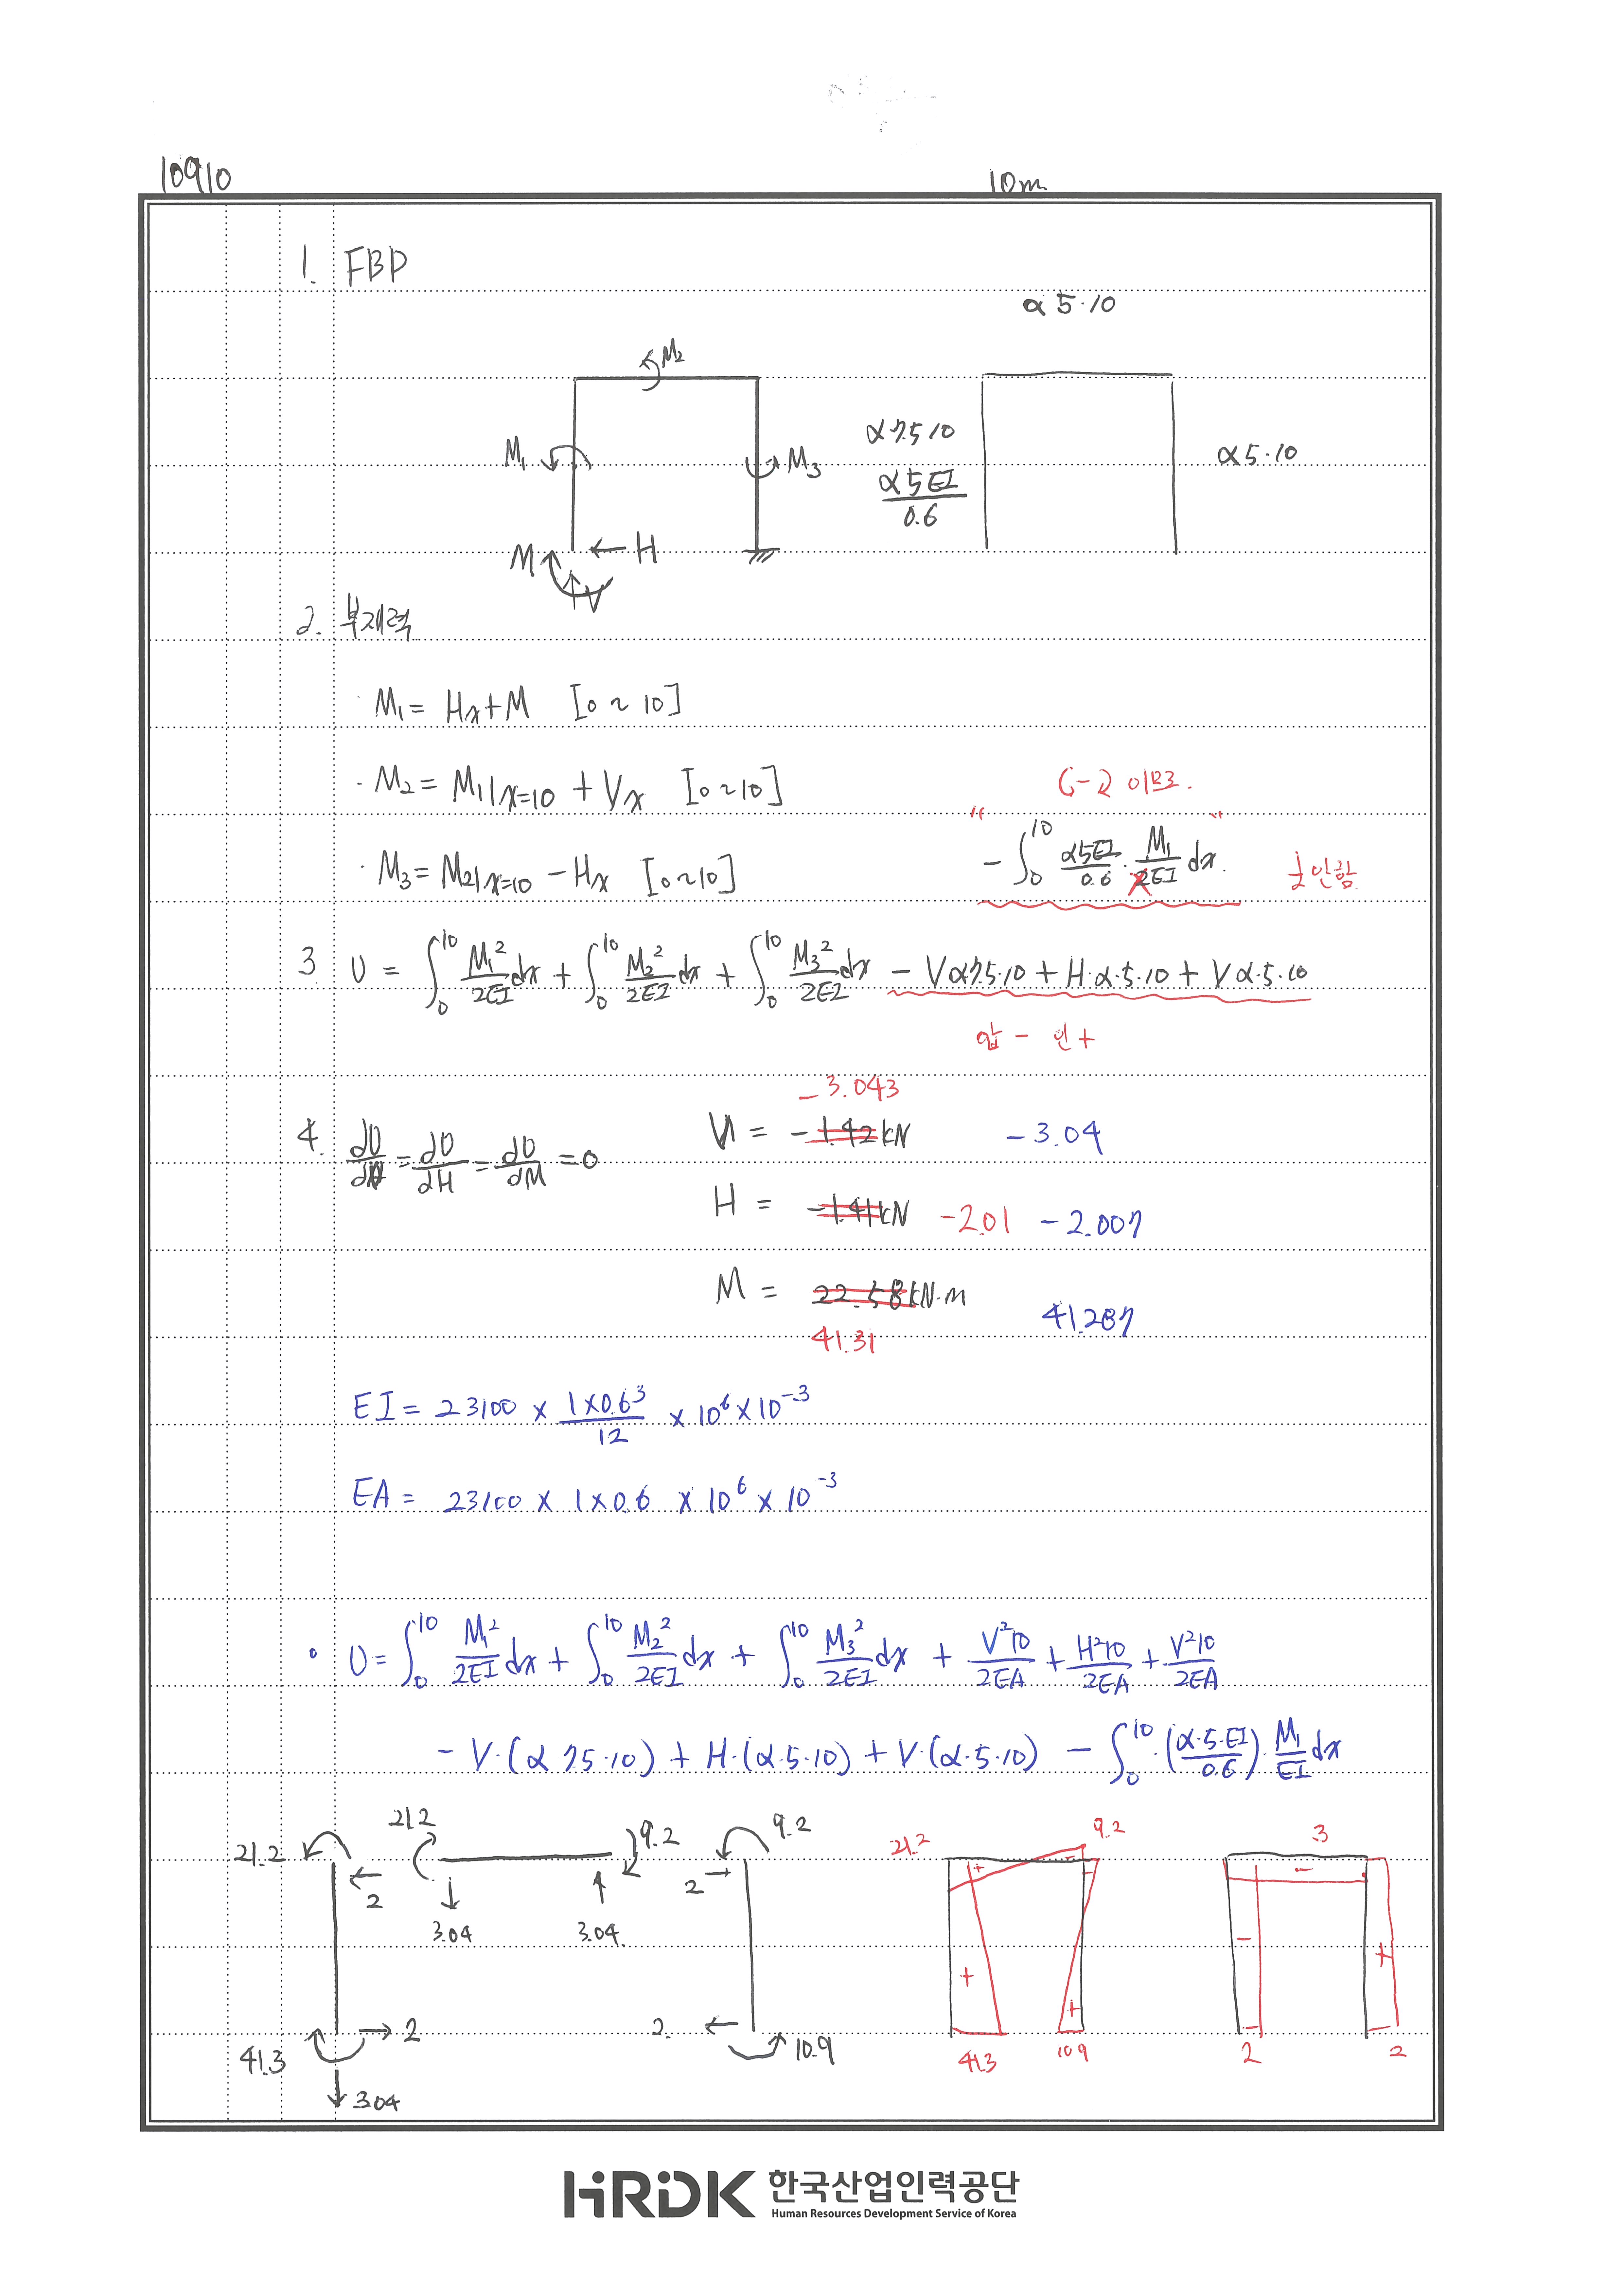 10910
10m
1. FBD
α5·10
M₂
M₁
M₃
α7.510
α5EI/0.6
α5·10
M
H
V
2. 부재력
· M₁ = Hx+M [0~10]
· M₂ = M₁|x=10 + Vx [0~10]
(-) 이므로.
· M₃ = M₂|x=10 - Hx [0~10]
" - ∫₀¹⁰ α5EI/0.6 · M₁/2EI dx. "
3 U = ∫₀¹⁰ M₁²/2EI dx + ∫₀¹⁰ M₂²/2EI dx + ∫₀¹⁰ M₃²/2EI dx - Vα7.5·10 + H·α·5·10 + Vα·5·10
압 - 인 +
-3.043
4. dU/dV = dU/dH = dU/dM = 0
V = -1.42kN -3.04
H = -1.41kN -2.01 -2.007
M = 22.58kN·m
41.31 41.287
EI = 23100 × 1×0.6³/12 × 10⁶ × 10⁻³
EA = 23100 × 1×0.6 × 10⁶ × 10⁻³
· U = ∫₀¹⁰ M₁²/2EI dx + ∫₀¹⁰ M₂²/2EI dx + ∫₀¹⁰ M₃²/2EI dx + V²10/2EA + H²10/2EA + V²10/2EA
- V·(α 7.5·10) + H·(α·5·10) + V·(α·5·10) - ∫₀¹⁰ (α·5·EI/0.6)·M₁/EI dx
21.2 2 41.3 2 3.04
21.2 9.2 3.04 3.04
9.2 2 2. 10.9
21.2 9.2 + - - + + 41.3 10.9
3 - - + 2 2
HRDK 한국산업인력공단
Human Resources Development Service of Korea